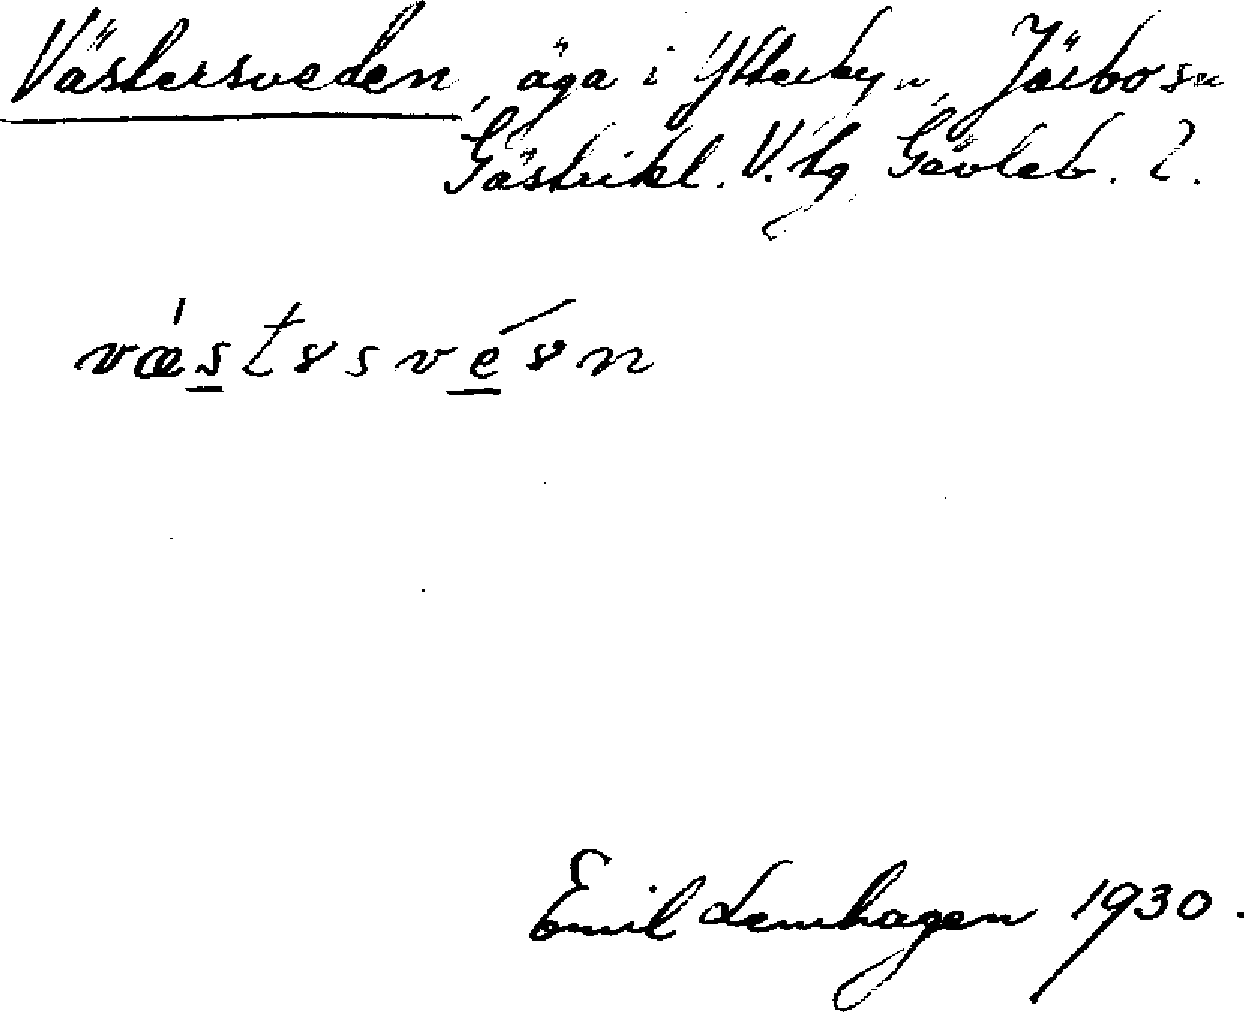 Västersveden, äga i Ytterbyn, Järbo sn
Gästrikl. V. tg Gävleb. l.
væ̍stɘsvéɘn
Emil Lemhagen 1930.